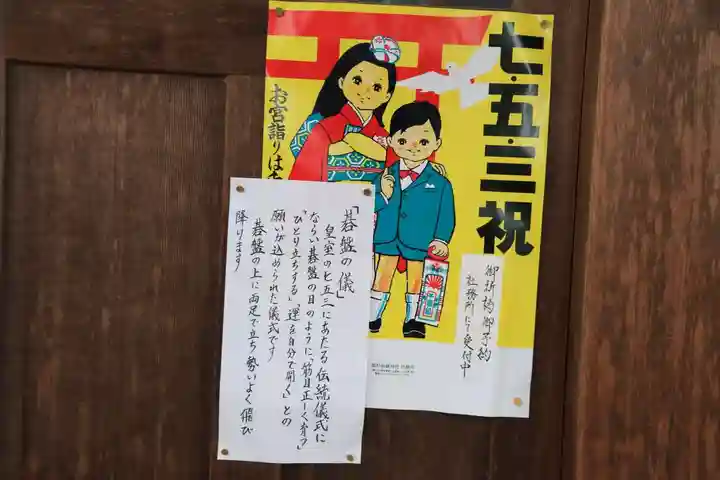 七・五・三祝
お宮詣りは
御祈祷御予約
社務所にて受付中
「碁盤の儀」
皇室の七五三にあたる伝統儀式に
ならい碁盤の目のように、「筋目正しく育つ」
「ひとり立ちする」「運を自分で開く」との
願いが込められた儀式です
碁盤の上に両足で立ち勢いよく飛び
降ります